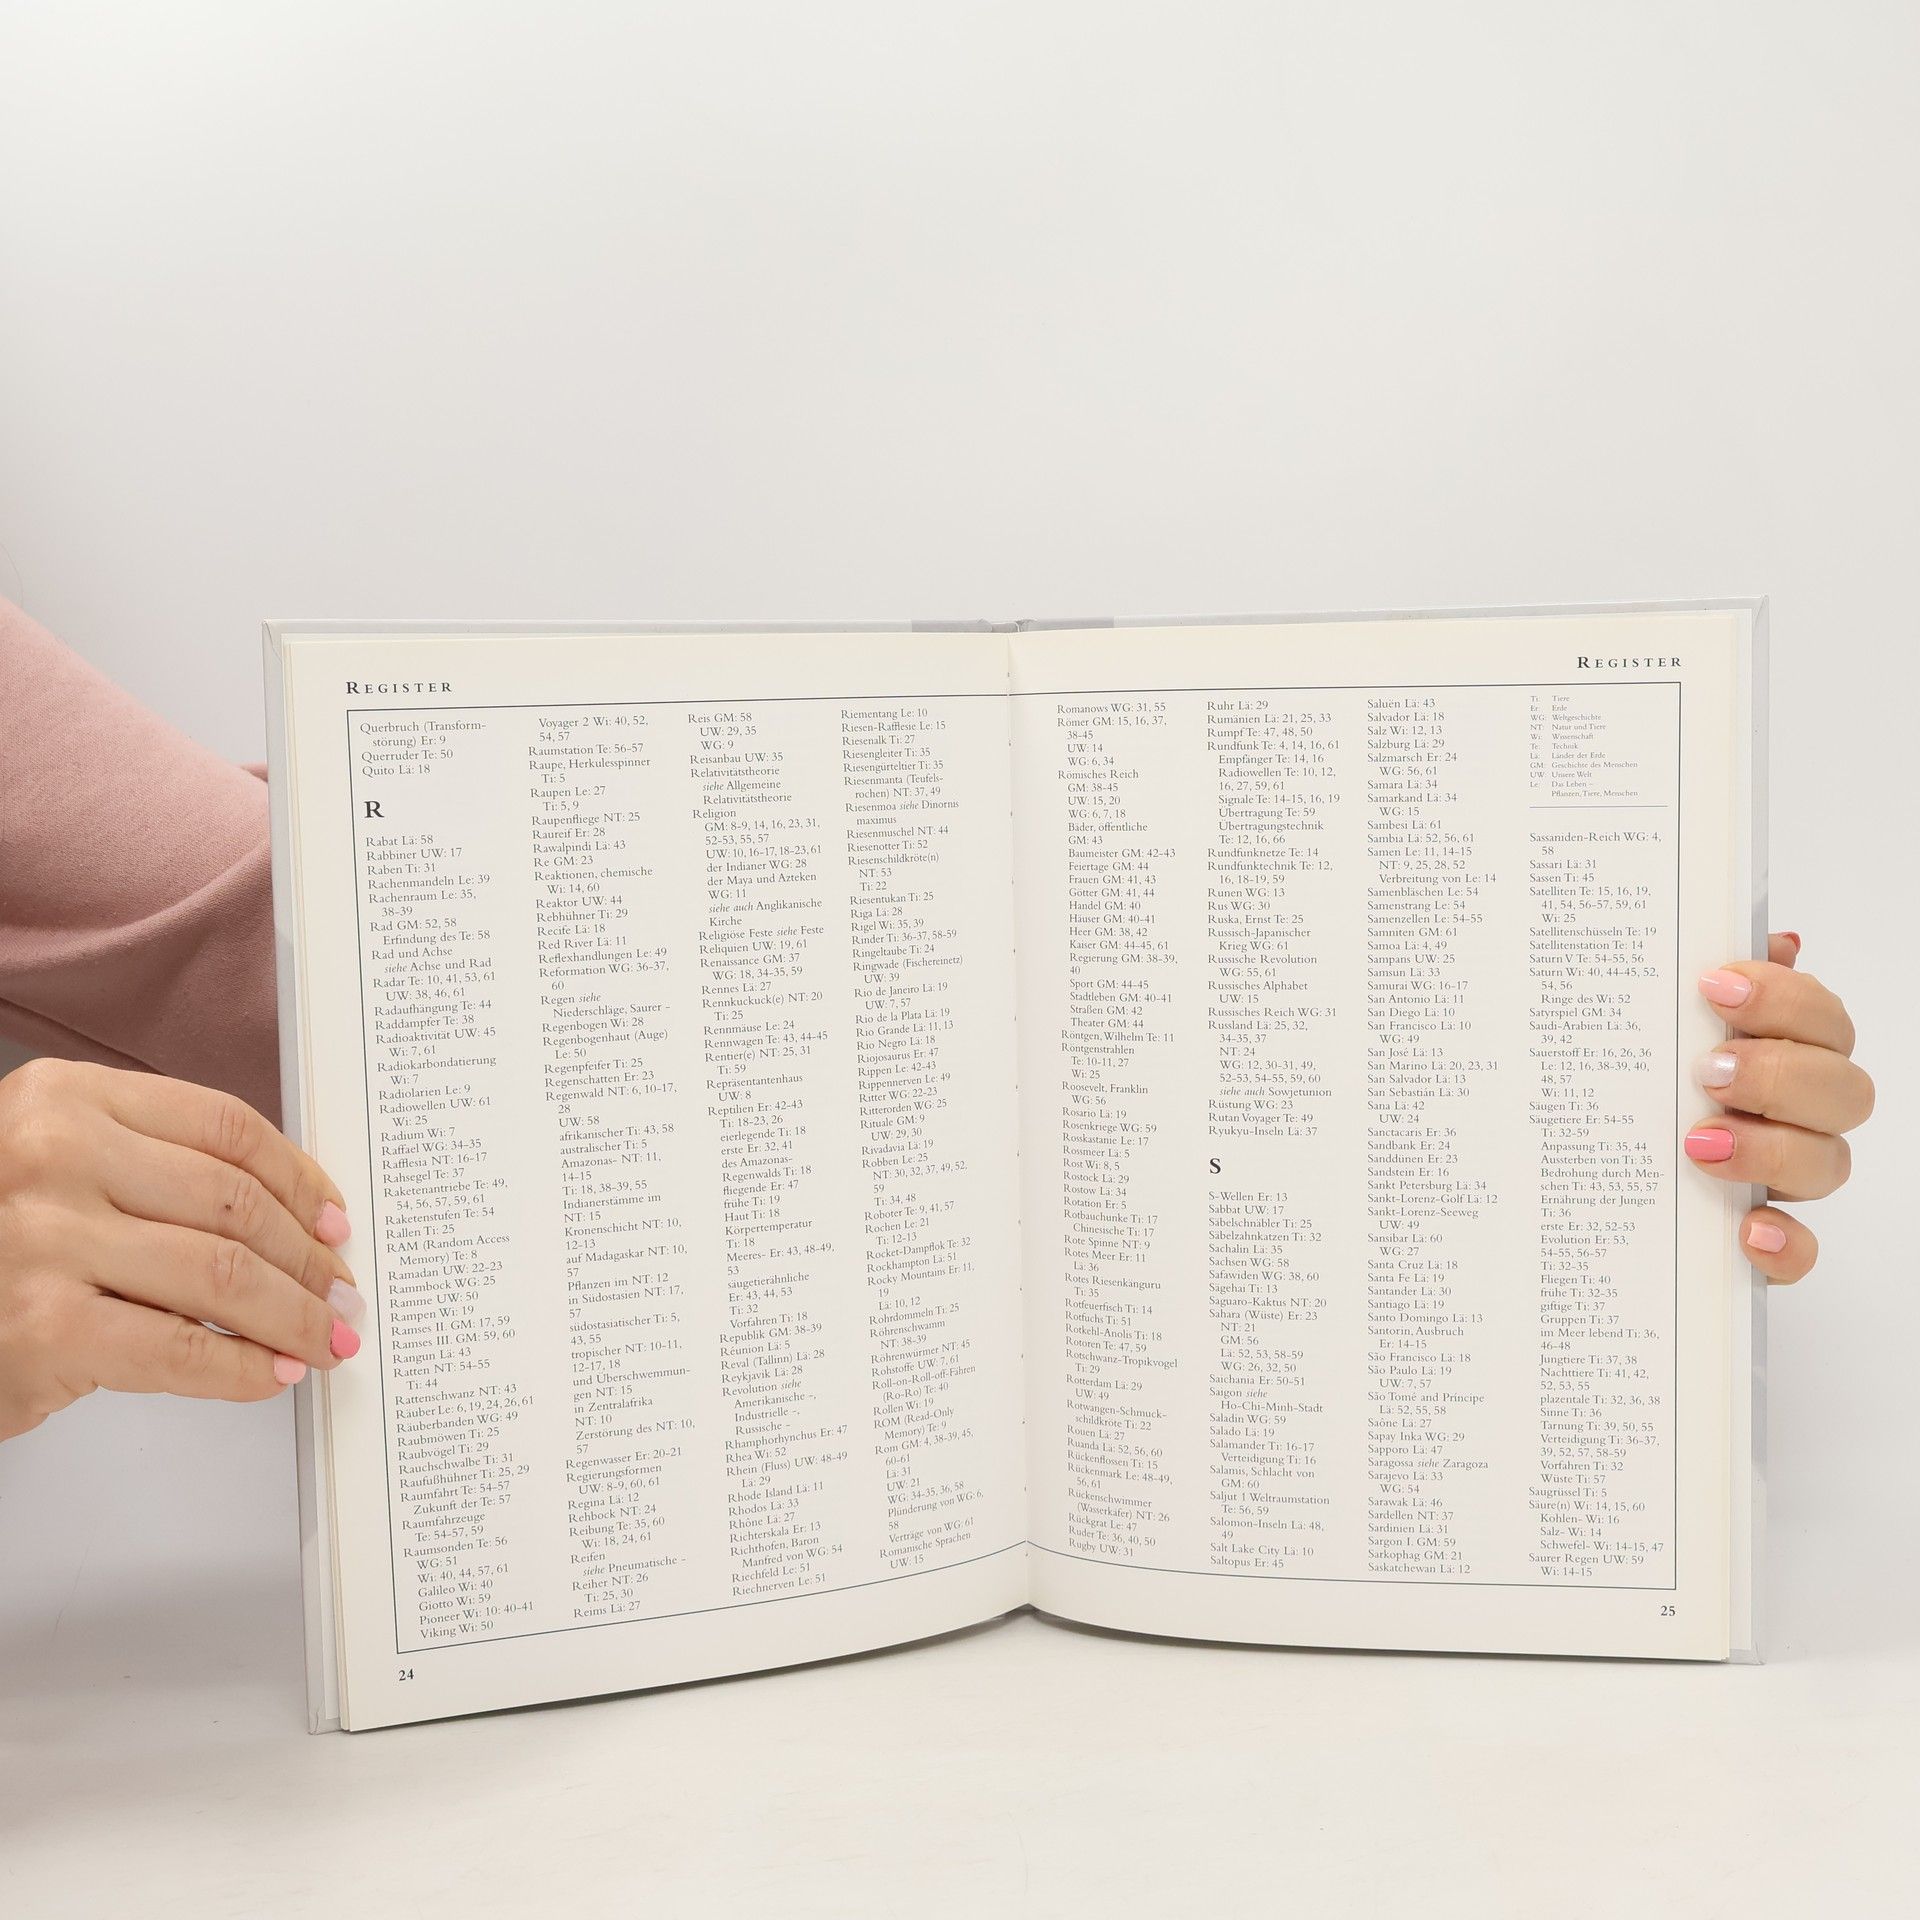 REGISTER
Querbruch (Transform-
störung) Er: 9
Querruder Te: 50
Quito Lä: 18
R
Rabat Lä: 58
Rabbiner UW: 17
Raben Ti: 31
Rachenmandeln Le: 39
Rachenraum Le: 35,
38-39
Rad GM: 52, 58
Erfindung des Te: 58
Rad und Achse
siehe Achse und Rad
Radar Te: 10, 41, 53, 61
UW: 38, 46, 61
Radaufhängung Te: 44
Raddampfer Te: 38
Radioaktivität UW: 45
Wi: 7, 61
Radiokarbondatierung
Wi: 7
Radiolarien Le: 9
Radiowellen UW: 61
Wi: 25
Radium Wi: 7
Raffael WG: 34-35
Rafflesia NT: 16-17
Rahsegel Te: 37
Raketenantriebe Te: 49,
54, 56, 57, 59, 61
Raketenstufen Te: 54
Rallen Ti: 25
RAM (Random Access
Memory) Te: 8
Ramadan UW: 22-23
Rammbock WG: 25
Ramme UW: 50
Rampen Wi: 19
Ramses II. GM: 17, 59
Ramses III. GM: 59, 60
Rangun Lä: 43
Ratten NT: 54-55
Ti: 44
Rattenschwanz NT: 43
Räuber Le: 6, 19, 24, 26, 61
Räuberbanden WG: 49
Raubmöwen Ti: 25
Raubvögel Ti: 29
Rauchschwalbe Ti: 31
Raufußhühner Ti: 25, 29
Raumfahrt Te: 54-57
Zukunft der Te: 57
Raumfahrzeuge
Te: 54-57, 59
Raumsonden Te: 56
WG: 51
Wi: 40, 44, 57, 61
Galileo Wi: 40
Giotto Wi: 59
Pioneer Wi: 10: 40-41
Viking Wi: 50
Voyager 2 Wi: 40, 52,
54, 57
Raumstation Te: 56-57
Raupe, Herkulesspinner
Ti: 5
Raupen Le: 27
Ti: 5, 9
Raupenfliege NT: 25
Raureif Er: 28
Rawalpindi Lä: 43
Re GM: 23
Reaktionen, chemische
Wi: 14, 60
Reaktor UW: 44
Rebhühner Ti: 29
Recife Lä: 18
Red River Lä: 11
Reflexhandlungen Le: 49
Reformation WG: 36-37,
60
Regen siehe
Niederschläge, Saurer -
Regenbogen Wi: 28
Regenbogenhaut (Auge)
Le: 50
Regenpfeifer Ti: 25
Regenschatten Er: 23
Regenwald NT: 6, 10-17,
28
UW: 58
afrikanischer Ti: 43, 58
australischer Ti: 5
Amazonas- NT: 11,
14-15
Ti: 18, 38-39, 55
Indianerstämme im
NT: 15
Kronenschicht NT: 10,
12-13
auf Madagaskar NT: 10,
57
Pflanzen im NT: 12
in Südostasien NT: 17,
57
südostasiatischer Ti: 5,
43, 55
tropischer NT: 10-11,
12-17, 18
und Überschwemmun-
gen NT: 15
in Zentralafrika
NT: 10
Zerstörung des NT: 10,
57
Regenwasser Er: 20-21
Regierungsformen
UW: 8-9, 60, 61
Regina Lä: 12
Rehbock NT: 24
Reibung Te: 35, 60
Wi: 18, 24, 61
Reifen
siehe Pneumatische -
Reiher NT: 26
Ti: 25, 30
Reims Lä: 27
Reis GM: 58
UW: 29, 35
WG: 9
Reisanbau UW: 35
Relativitätstheorie
siehe Allgemeine
Relativitätstheorie
Religion
GM: 8-9, 14, 16, 23, 31,
52-53, 55, 57
UW: 10, 16-17, 18-23, 61
der Indianer WG: 28
der Maya und Azteken
WG: 11
siehe auch Anglikanische
Kirche
Religiöse Feste siehe Feste
Reliquien UW: 19, 61
Renaissance GM: 37
WG: 18, 34-35, 59
Rennes Lä: 27
Rennkuckuck(e) NT: 20
Ti: 25
Rennmäuse Le: 24
Rennwagen Te: 43, 44-45
Rentier(e) NT: 25, 31
Ti: 59
Repräsentantenhaus
UW: 8
Reptilien Er: 42-43
Ti: 18-23, 26
eierlegende Ti: 18
erste Er: 32, 41
des Amazonas-
Regenwalds Ti: 18
fliegende Er: 47
frühe Ti: 19
Haut Ti: 18
Körpertemperatur
Ti: 18
Meeres- Er: 43, 48-49,
53
säugetierähnliche
Er: 43, 44, 53
Ti: 32
Vorfahren Ti: 18
Republik GM: 38-39
Réunion Lä: 5
Reval (Tallinn) Lä: 28
Reykjavik Lä: 28
Revolution siehe
Amerikanische -,
Industrielle -,
Russische -
Rhamphorhynchus Er: 47
Rhea Wi: 52
Rhein (Fluss) UW: 48-49
Lä: 29
Rhode Island Lä: 11
Rhodos Lä: 33
Rhône Lä: 27
Richterskala Er: 13
Richthofen, Baron
Manfred von WG: 54
Riechfeld Le: 51
Riechnerven Le: 51
Riementang Le: 10
Riesen-Rafflesie Le: 15
Riesenalk Ti: 27
Riesengleiter Ti: 35
Riesengürteltier Ti: 35
Riesenmanta (Teufels-
rochen) NT: 37, 49
Riesenmoa siehe Dinornis
maximus
Riesenmuschel NT: 44
Riesenotter Ti: 52
Riesenschildkröte(n)
NT: 53
Ti: 22
Riesentukan Ti: 25
Riga Lä: 28
Rigel Wi: 35, 39
Rinder Ti: 36-37, 58-59
Ringeltaube Ti: 24
Ringwade (Fischereinetz)
UW: 39
Rio de Janeiro Lä: 19
UW: 7, 57
Rio de la Plata Lä: 19
Rio Grande Lä: 11, 13
Rio Negro Lä: 18
Riojosaurus Er: 47
Rippen Le: 42-43
Rippennerven Le: 49
Ritter WG: 22-23
Ritterorden WG: 25
Rituale GM: 9
UW: 29, 30
Rivadavia Lä: 19
Robben Le: 25
NT: 30, 32, 37, 49, 52,
59
Ti: 34, 48
Roboter Te: 9, 41, 57
Rochen Le: 21
Ti: 12-13
Rocket-Dampflok Te: 32
Rockhampton Lä: 51
Rocky Mountains Er: 11,
19
Lä: 10, 12
Rohrdommeln Ti: 25
Röhrenschwamm
NT: 38-39
Röhrenwürmer NT: 45
Rohstoffe UW: 7, 61
Roll-on-Roll-off-Fähren
(Ro-Ro) Te: 40
Rollen Wi: 19
ROM (Read-Only
Memory) Te: 9
Rom GM: 4, 38-39, 45,
60-61
Lä: 31
UW: 21
WG: 34-35, 36, 58
Plünderung von WG: 6,
58
Verträge von WG: 61
Romanische Sprachen
UW: 15
24
REGISTER
Romanows WG: 31, 55
Römer GM: 15, 16, 37,
38-45
UW: 14
WG: 6, 34
Römisches Reich
GM: 38-45
UW: 15, 20
WG: 6, 7, 18
Bäder, öffentliche
GM: 43
Baumeister GM: 42-43
Feiertage GM: 44
Frauen GM: 41, 43
Götter GM: 41, 44
Handel GM: 40
Häuser GM: 40-41
Heer GM: 38, 42
Kaiser GM: 44-45, 61
Regierung GM: 38-39,
40
Sport GM: 44-45
Stadtleben GM: 40-41
Straßen GM: 42
Theater GM: 44
Röntgen, Wilhelm Te: 11
Röntgenstrahlen
Te: 10-11, 27
Wi: 25
Roosevelt, Franklin
WG: 56
Rosario Lä: 19
Rosenkriege WG: 59
Rosskastanie Le: 17
Rossmeer Lä: 5
Rost Wi: 8, 5
Rostock Lä: 29
Rostow Lä: 34
Rotation Er: 5
Rotbauchunke Ti: 17
Chinesische Ti: 17
Rote Spinne NT: 9
Rotes Meer Er: 11
Lä: 36
Rotes Riesenkänguru
Ti: 35
Rotfeuerfisch Ti: 14
Rotfuchs Ti: 51
Rotkehl-Anolis Ti: 18
Rotoren Te: 47, 59
Rotschwanz-Tropikvogel
Ti: 29
Rotterdam Lä: 29
UW: 49
Rotwangen-Schmuck-
schildkröte Ti: 22
Rouen Lä: 27
Ruanda Lä: 52, 56, 60
Rückenflossen Ti: 15
Rückenmark Le: 48-49,
56, 61
Rückenschwimmer
(Wasserkäfer) NT: 26
Rückgrat Le: 47
Ruder Te: 36, 40, 50
Rugby UW: 31
Ruhr Lä: 29
Rumänien Lä: 21, 25, 33
Rumpf Te: 47, 48, 50
Rundfunk Te: 4, 14, 16, 61
Empfänger Te: 14, 16
Radiowellen Te: 10, 12,
16, 27, 59, 61
Signale Te: 14-15, 16, 19
Übertragung Te: 59
Übertragungstechnik
Te: 12, 16, 66
Rundfunknetze Te: 14
Rundfunktechnik Te: 12,
16, 18-19, 59
Runen WG: 13
Rus WG: 30
Ruska, Ernst Te: 25
Russisch-Japanischer
Krieg WG: 61
Russische Revolution
WG: 55, 61
Russisches Alphabet
UW: 15
Russisches Reich WG: 31
Russland Lä: 25, 32,
34-35, 37
NT: 24
WG: 12, 30-31, 49,
52-53, 54-55, 59, 60
siehe auch Sowjetunion
Rüstung WG: 23
Rutan Voyager Te: 49
Ryukyu-Inseln Lä: 37
S
S-Wellen Er: 13
Sabbat UW: 17
Säbelschnäbler Ti: 25
Säbelzahnkatzen Ti: 32
Sachalin Lä: 35
Sachsen WG: 58
Safawiden WG: 38, 60
Sägehai Ti: 13
Saguaro-Kaktus NT: 20
Sahara (Wüste) Er: 23
NT: 21
GM: 56
Lä: 52, 53, 58-59
WG: 26, 32, 50
Saichania Er: 50-51
Saigon siehe
Ho-Chi-Minh-Stadt
Saladin WG: 59
Salado Lä: 19
Salamander Ti: 16-17
Verteidigung Ti: 16
Salamis, Schlacht von
GM: 60
Saljut 1 Weltraumstation
Te: 56, 59
Salomon-Inseln Lä: 48,
49
Salt Lake City Lä: 10
Saltopus Er: 45
Saluën Lä: 43
Salvador Lä: 18
Salz Wi: 12, 13
Salzburg Lä: 29
Salzmarsch Er: 24
WG: 56, 61
Samara Lä: 34
Samarkand Lä: 34
WG: 15
Sambesi Lä: 61
Sambia Lä: 52, 56, 61
Samen Le: 11, 14-15
NT: 9, 25, 28, 52
Verbreitung von Le: 14
Samenbläschen Le: 54
Samenstrang Le: 54
Samenzellen Le: 54-55
Samniten GM: 61
Samoa Lä: 4, 49
Sampans UW: 25
Samsun Lä: 33
Samurai WG: 16-17
San Antonio Lä: 11
San Diego Lä: 10
San Francisco Lä: 10
WG: 49
San José Lä: 13
San Marino Lä: 20, 23, 31
San Salvador Lä: 13
San Sebastián Lä: 30
Sana Lä: 42
UW: 24
Sanctacaris Er: 36
Sandbank Er: 24
Sanddünen Er: 23
Sandstein Er: 16
Sankt Petersburg Lä: 34
Sankt-Lorenz-Golf Lä: 12
Sankt-Lorenz-Seeweg
UW: 49
Sansibar Lä: 60
WG: 27
Santa Cruz Lä: 18
Santa Fe Lä: 19
Santander Lä: 30
Santiago Lä: 19
Santo Domingo Lä: 13
Santorin, Ausbruch
Er: 14-15
São Francisco Lä: 18
São Paulo Lä: 19
UW: 7, 57
São Tomé and Príncipe
Lä: 52, 55, 58
Saône Lä: 27
Sapay Inka WG: 29
Sapporo Lä: 47
Saragossa siehe Zaragoza
Sarajevo Lä: 33
WG: 54
Sarawak Lä: 46
Sardellen NT: 37
Sardinien Lä: 31
Sargon I. GM: 59
Sarkophag GM: 21
Saskatchewan Lä: 12
Ti: Tiere
Er: Erde
WG: Weltgeschichte
NT: Natur und Tiere
Wi: Wissenschaft
Te: Technik
Lä: Länder der Erde
GM: Geschichte des Menschen
UW: Unsere Welt
Le: Das Leben –
Pflanzen, Tiere, Menschen
Sassaniden-Reich WG: 4,
58
Sassari Lä: 31
Sassen Ti: 45
Satelliten Te: 15, 16, 19,
41, 54, 56-57, 59, 61
Wi: 25
Satellitenschüsseln Te: 19
Satellitenstation Te: 14
Saturn V Te: 54-55, 56
Saturn Wi: 40, 44-45, 52,
54, 56
Ringe des Wi: 52
Satyrspiel GM: 34
Saudi-Arabien Lä: 36,
39, 42
Sauerstoff Er: 16, 26, 36
Le: 12, 16, 38-39, 40,
48, 57
Wi: 11, 12
Säugen Ti: 36
Säugetiere Er: 54-55
Ti: 32-59
Anpassung Ti: 35, 44
Aussterben von Ti: 35
Bedrohung durch Men-
schen Ti: 43, 53, 55, 57
Ernährung der Jungen
Ti: 36
erste Er: 32, 52-53
Evolution Er: 53,
54-55, 56-57
Ti: 32-35
Fliegen Ti: 40
frühe Ti: 32-35
giftige Ti: 37
Gruppen Ti: 37
im Meer lebend Ti: 36,
46-48
Jungtiere Ti: 37, 38
Nachttiere Ti: 41, 42,
52, 53, 55
plazentale Ti: 32, 36, 38
Sinne Ti: 36
Tarnung Ti: 39, 50, 55
Verteidigung Ti: 36-37,
39, 52, 57, 58-59
Vorfahren Ti: 32
Wüste Ti: 57
Saugrüssel Ti: 5
Säure(n) Wi: 14, 15, 60
Kohlen- Wi: 16
Salz- Wi: 14
Schwefel- Wi: 14-15, 47
Saurer Regen UW: 59
Wi: 14-15
25